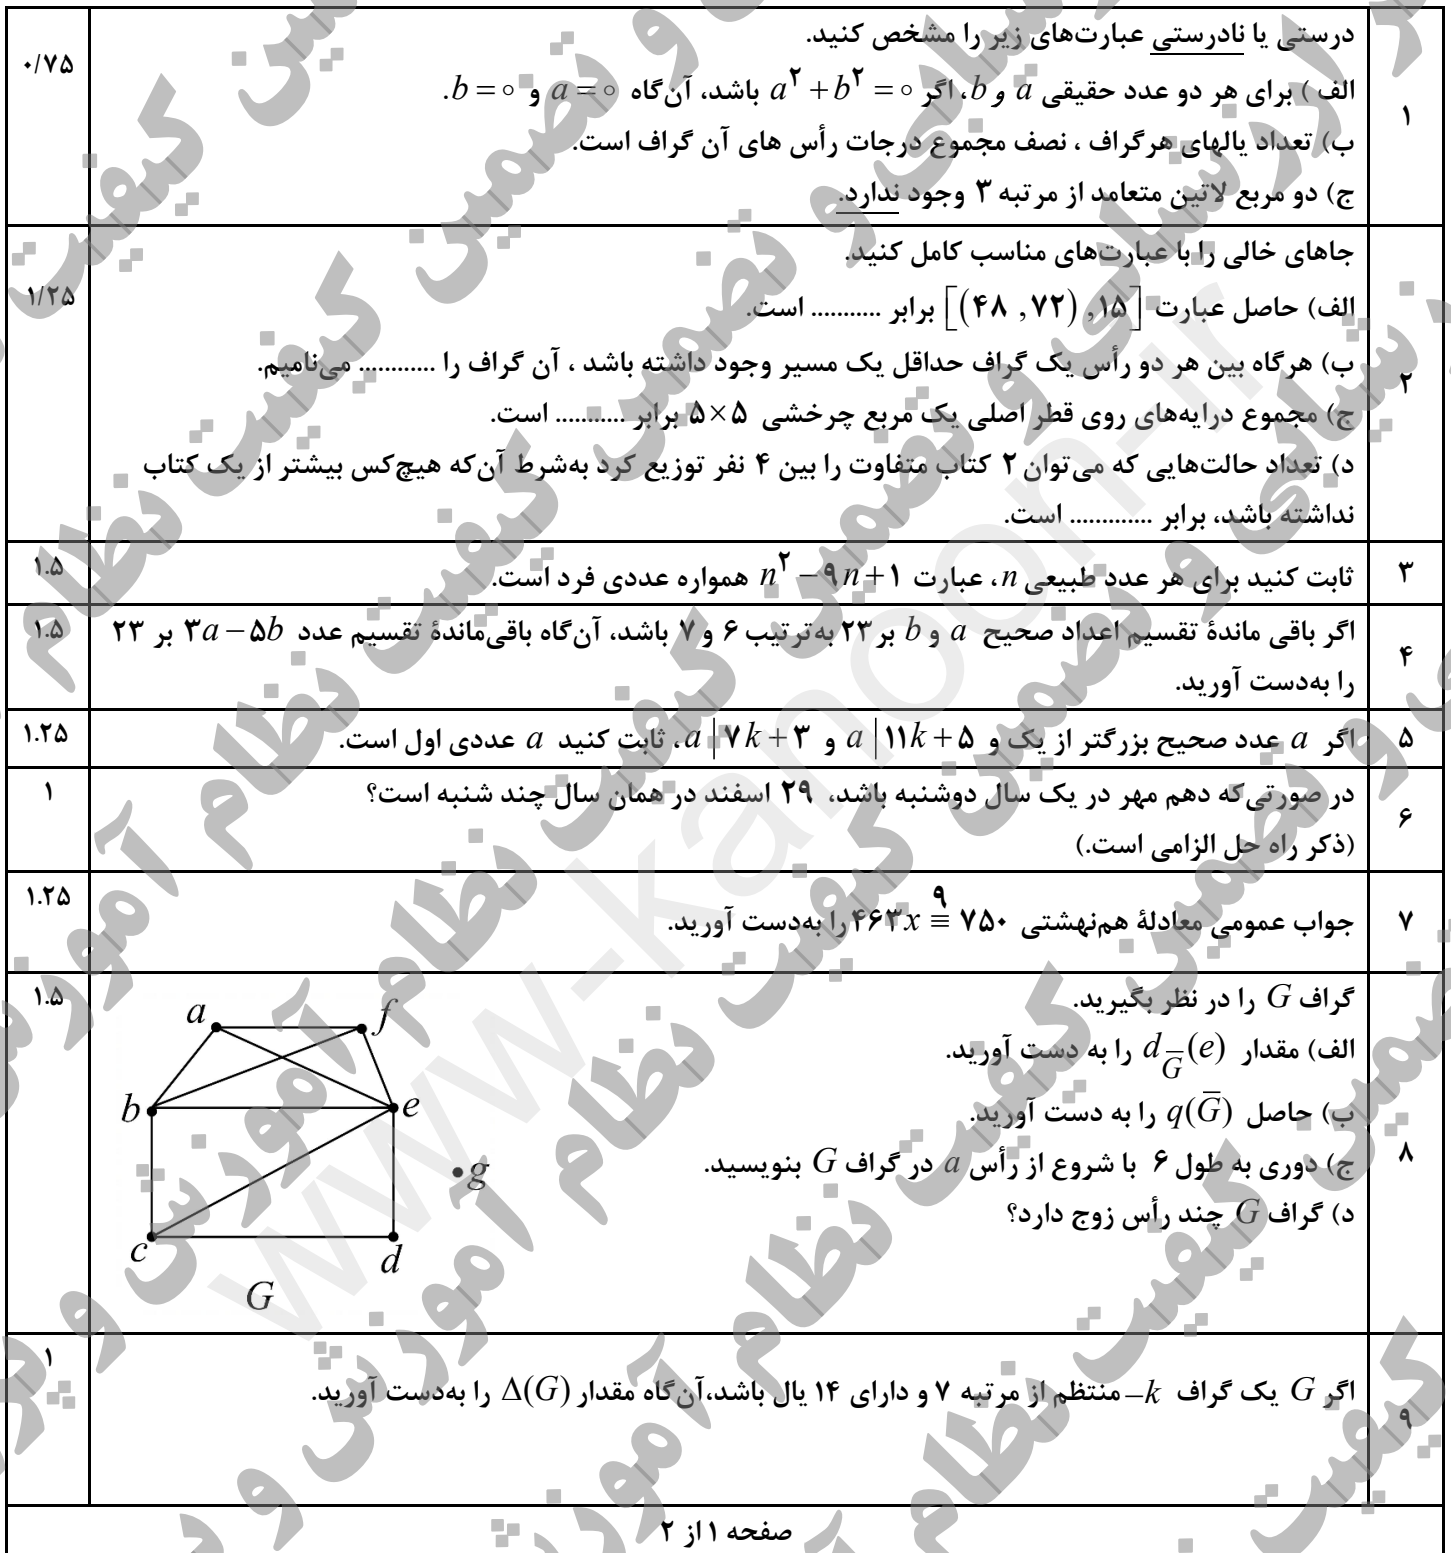 ۱
درستی یا نادرستی عبارت‌های زیر را مشخص کنید.
۰/۷۵
الف) برای هر دو عدد حقیقی a و b، اگر a² + b² = ۰ باشد، آن‌گاه a = ۰ و b = ۰.
ب) تعداد یالهای هرگراف ، نصف مجموع درجات رأس های آن گراف است.
ج) دو مربع لاتین متعامد از مرتبه ۳ وجود ندارد.
۲
جاهای خالی را با عبارت‌های مناسب کامل کنید.
۱/۲۵
الف) حاصل عبارت [(۴۸ , ۷۲) , ۱۵] برابر ........... است.
ب) هرگاه بین هر دو رأس یک گراف حداقل یک مسیر وجود داشته باشد ، آن گراف را ............ می‌نامیم.
ج) مجموع درایه‌های روی قطر اصلی یک مربع چرخشی ۵×۵ برابر ........... است.
د) تعداد حالت‌هایی که می‌توان ۲ کتاب متفاوت را بین ۴ نفر توزیع کرد به‌شرط آن‌که هیچ‌کس بیشتر از یک کتاب
نداشته باشد، برابر ............. است.
۳
ثابت کنید برای هر عدد طبیعی n، عبارت n² − ۹n + ۱ همواره عددی فرد است.
۱.۵
۴
اگر باقی ماندهٔ تقسیم اعداد صحیح a و b بر ۲۳ به‌ترتیب ۶ و ۷ باشد، آن‌گاه باقی‌ماندهٔ تقسیم عدد ۳a − ۵b بر ۲۳
را به‌دست آورید.
۱.۵
۵
اگر a عدد صحیح بزرگتر از یک و a | ۱۱k + ۵ و a | ۷k + ۳، ثابت کنید a عددی اول است.
۱.۲۵
۶
در صورتی‌که دهم مهر در یک سال دوشنبه باشد، ۲۹ اسفند در همان سال چند شنبه است؟
(ذکر راه حل الزامی است.)
۱
۷
جواب عمومی معادلهٔ هم‌نهشتی ۴۶۳x ≡⁹ ۷۵۰ را به‌دست آورید.
۱.۲۵
۸
گراف G را در نظر بگیرید.
۱.۵
الف) مقدار d_G̅(e) را به دست آورید.
ب) حاصل q(G̅) را به دست آورید.
ج) دوری به طول ۶ با شروع از رأس a در گراف G بنویسید.
د) گراف G چند رأس زوج دارد؟
a
f
b
e
g
c
d
G
۹
اگر G یک گراف k−منتظم از مرتبه ۷ و دارای ۱۴ یال باشد،آن‌گاه مقدار Δ(G) را به‌دست آورید.
۱
صفحه ۱ از ۲
www-kanoon-ir